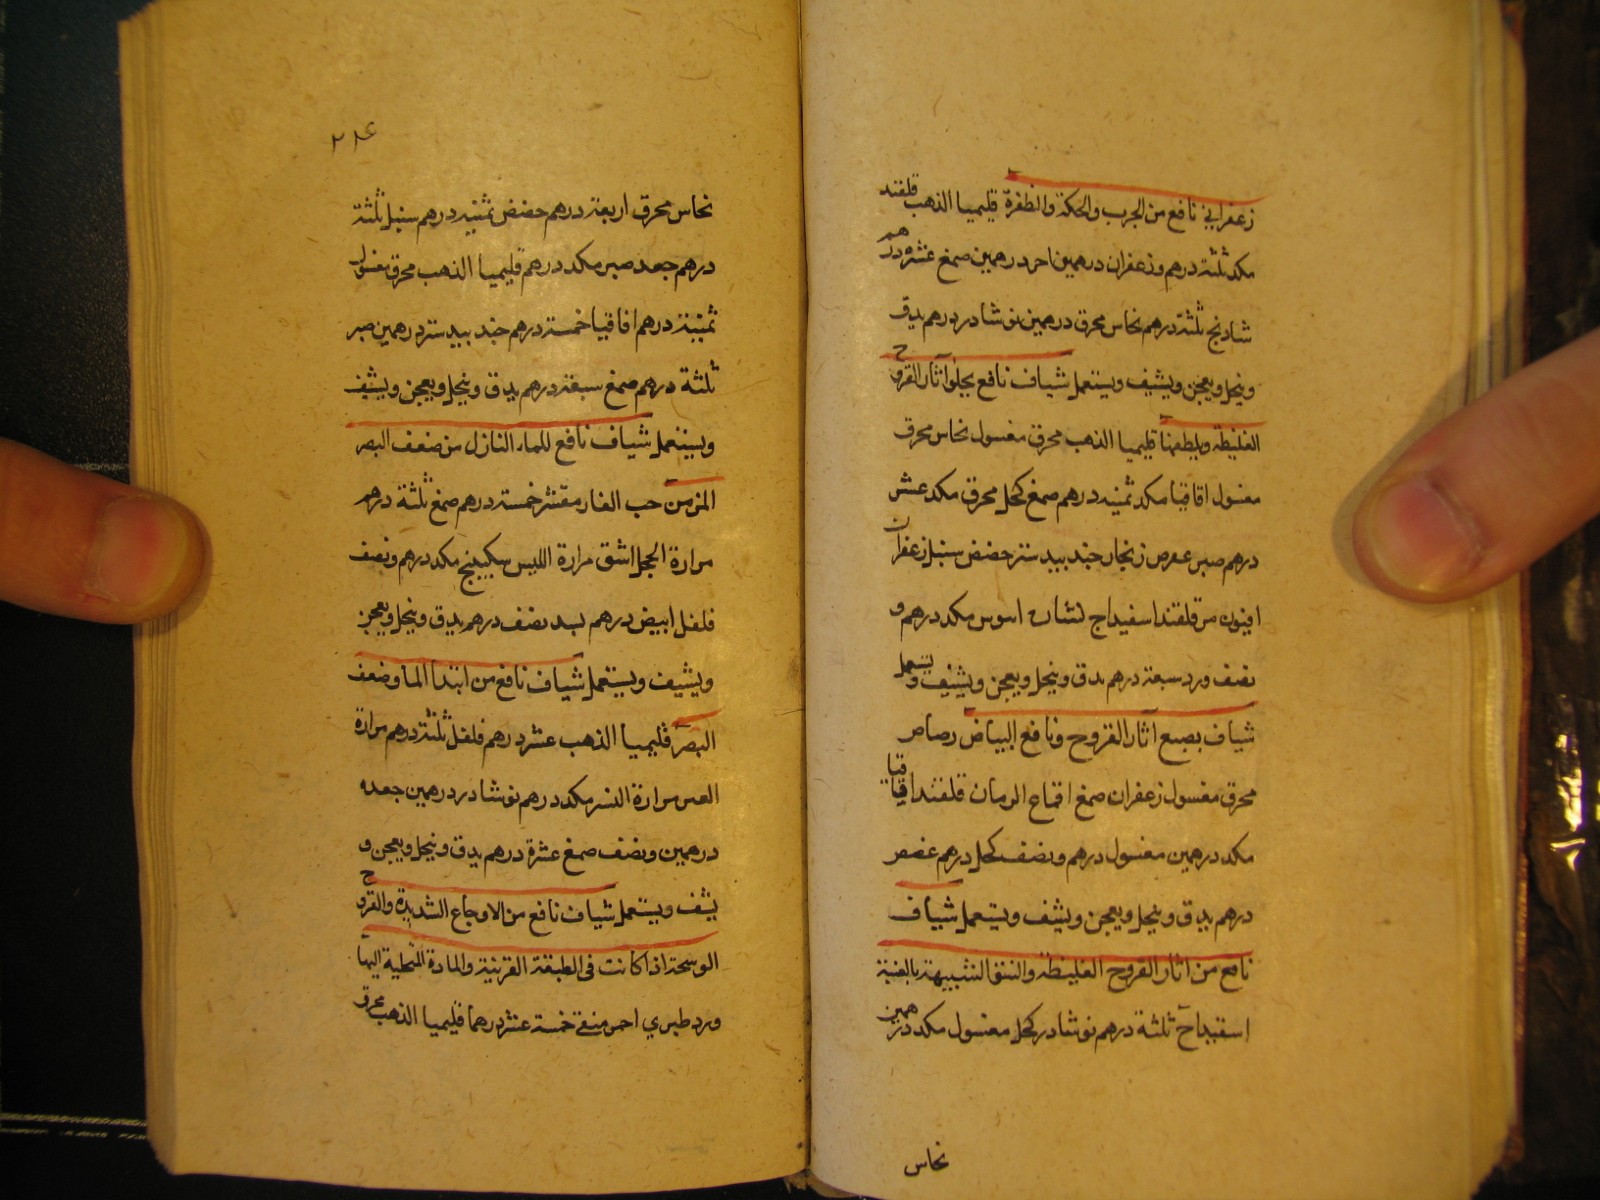 زعفراني نافع من الجرب والحكة والظفرة قليميا الذهب قلقند
مكد ثلثة درهم وزعفران درهمين اخر درهمين صمغ عشرة درهم
شادنج ثلثة درهم نحاس محرق درهمين نوشادر درهم يدق
وينخل ويعجن ويشيف ويستعمل شياف نافع يجلو آثار القروح
الغليظة ويلطفها قليميا الذهب محرق مغسول نحاس محرق
مغسول اقاقيا مكد ثمنيه درهم صمغ كحل محرق مكد عشر
درهم صبر عفص زنجار جند بيدستر حضض سنبل زعفران
افيون مر قلقند اسفيداج نشاء مكد درهم و
نصف ورد سبعة درهم يدق وينخل ويعجن ويشيف ويستعمل
شياف يصبغ آثار القروح ونافع البياض رصاص
محرق مغسول زعفران صمغ اقماح الرمان قلقند اقاقيا
مكد درهمين مغسول درهم ونصف كحل درهم عفص
درهم يدق وينخل ويعجن ويشف ويستعمل شياف
نافع من اثار القروح الغليظة والنتق الشبيهة بالعنبة
اسفيداج ثلثة درهم نوشادر كحل مغسول مكد درهمين
نحاس
٢٢٤
نحاس محرق اربعة درهم حضض ثمنيه درهم سنبل ثلثة
درهم جعد صبر مكد درهم قليميا الذهب محرق مغسول
ثمنية درهم اقاقيا خمسة درهم جند بيدستر درهمين صبر
ثلثة درهم صمغ سبعة درهم يدق وينخل ويعجن ويشيف
ويستعمل شياف نافع للماء النازل من ضعف البصر
المزمن حب الغار مقشر خمسة درهم صمغ ثلثة درهم
مرارة الجمل اشق مرارة سكبينج مكد درهم ونصف
فلفل ابيض درهم بسد نصف درهم يدق وينخل ويعجن
ويشيف ويستعمل شياف نافع من ابتدا الما وضعف
البصر قليميا الذهب عشر درهم فلفل ثلثة درهم مرارة
مرارة النسر مكد درهم نوشادر درهمين جعده
درهمين ونصف صمغ عشرة درهم يدق وينخل ويعجن و
يشف ويستعمل شياف نافع من الاوجاع الشديدة والقروح
الوسخة اذا كانت في الطبقة القرنية والمادة المنحلبة اليها
ورد طبري احمر منقى خمسة عشر درهما قليميا الذهب محرق